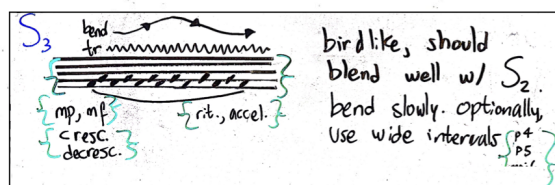 S3
bend
tr
mp, mf
rit., accel.
cresc.
decresc.
birdlike, should
blend well w/ S2.
bend slowly. optionally,
use wide intervals
p4
p5